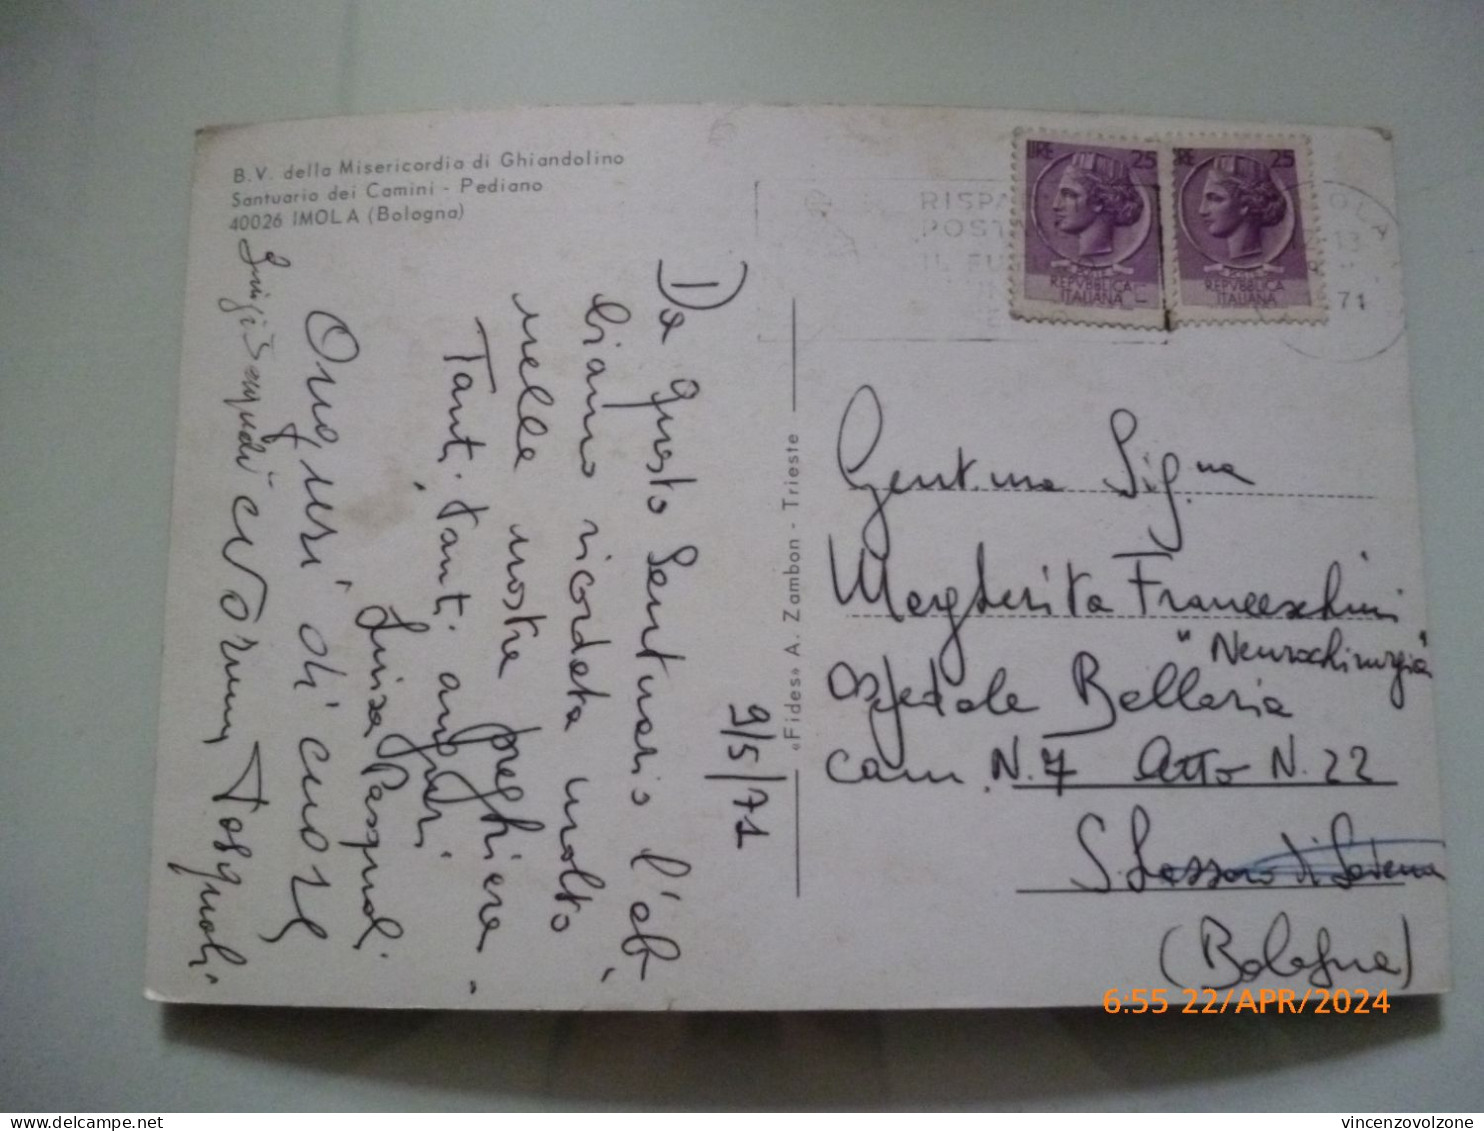 B.V. della Misericordia di Ghiandolino
Santuario dei Camini - Pediano
40026 IMOLA (Bologna)
Da questo Santuario l'ab-
biamo ricordata molto
nelle nostre preghiere -
Tanti, tanti auguri
Luisa Pasquali
Auguri di cuore
Luigi Pasquali e Norma Pasquali
9/5/71
«Fides» A. Zambon - Trieste
RISPA
POST
IL FU
LIRE 25
REPVBBLICA
ITALIANA
IRE 25
REPVBBLICA
ITALIANA
71
Gent.ma Sig.na
Margherita Franceschini
"Neurochirurgia"
Ospedale Bellaria
Cam. N. 7 Letto N. 22
S. Lazzaro di Savena
(Bologna)
6:55 22/APR/2024
delcampe.net
vincenzovolzone